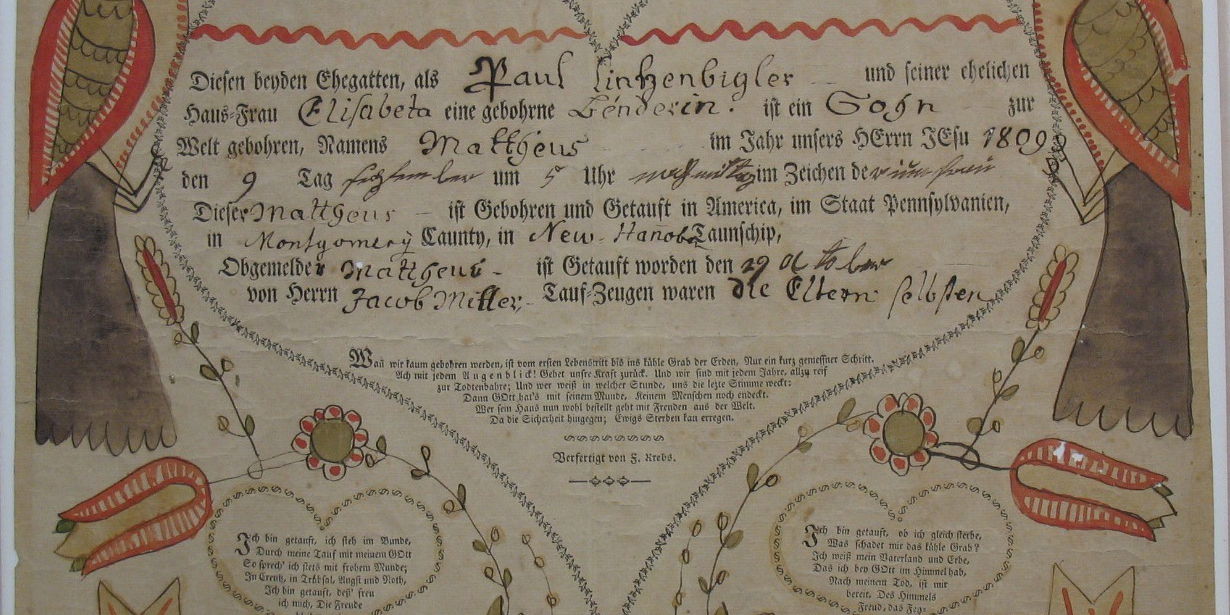 Diesen beyden Ehegatten, als Paul Lintzenbigler und seiner ehelichen
Haus-Frau Elisabeta eine gebohrne Benderin. ist ein Sohn zur
Welt gebohren, Namens Mattheus im Jahr unsers HErrn JEsu 1809
den 9 Tag September um 5 Uhr im Zeichen der
Dieser Mattheus ist Gebohren und Getauft in America, im Staat Pennsylvanien,
in Montgomery Caunty, in New-Hanober Taunschip,
Obgemelder Mattheus ist Getauft worden den 29 October
von Herrn Jacob Miller Tauf-Zeugen waren die Eltern selbsten
Wañ wir kaum gebohren werden, ist vom ersten Lebenstritt bis ins kühle Grab der Erden, Nur ein kurz gemeßner Schritt.
Ach mit jedem Augenblick! Gehet unsre Kraft zurück. Und wir sind mit jedem Jahre, allzu reif
zur Todtenbahre; Und wer weiß in welcher Stunde, uns die lezte Stimme weckt:
Dann GOtt hat's mit seinem Munde, Keinem Menschen noch endeckt.
Wer sein Haus nun wohl bestellt geht mit Freuden aus der Welt.
Da die Sicherheit hingegen; Ewigs Sterben kan erregen.
Verfertigt von F. Krebs.
Ich bin getauft, ich steh im Bunde,
Durch meine Tauf mit meinem GOtt
So sprech' ich stets mit frohem Munde;
In Creutz, in Trübsal, Angst und Noth,
Ich bin getauft, deß' freu
ich mich, Die Freude
Ich bin getauft, ob ich gleich sterbe,
Was schadet mir das kühle Grab?
Ich weiß mein Vaterland und Erbe,
Das ich bey GOtt im Himmel hab,
Nach meinem Tod, ist mir
bereit, Des Himmels
Freud, das